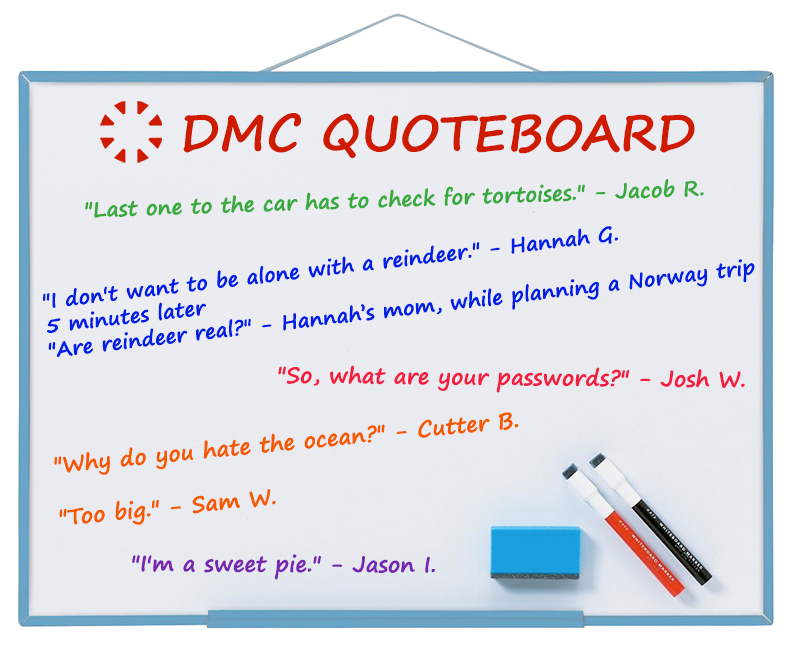 DMC QUOTEBOARD
"Last one to the car has to check for tortoises." - Jacob R.
"I don't want to be alone with a reindeer." - Hannah G.
5 minutes later
"Are reindeer real?" - Hannah’s mom, while planning a Norway trip
"So, what are your passwords?" - Josh W.
"Why do you hate the ocean?" - Cutter B.
"Too big." - Sam W.
"I'm a sweet pie." - Jason I.